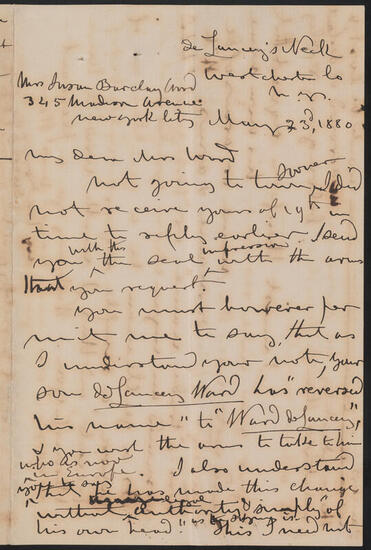 de Lancey's Neck
Westchester Co
N.Y.
Mrs Susan Barclay Ward
345 Madison Avenue
New York City May 23d, 1880
My dear Mrs Ward
Not going to town sooner I did
not receive yours of 19th in
time to reply earlier. I send
you with this the seal impression with the arms
that you request.
You must however per
mit me to say, that as
I understand your note, your
son de Lancey Ward has "reversed
his name" to "Ward de Lancey",
& you want the arms to take to him
who is now
in Europe. I also understand
you to say
that he has made this change
"without authority simply of
his own head." This I need not